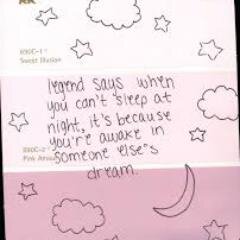 690C-1
Sweet Illusion
legend says when
you can't sleep at
night, it's because
you're awake in
690C-2
someone else's
dream.